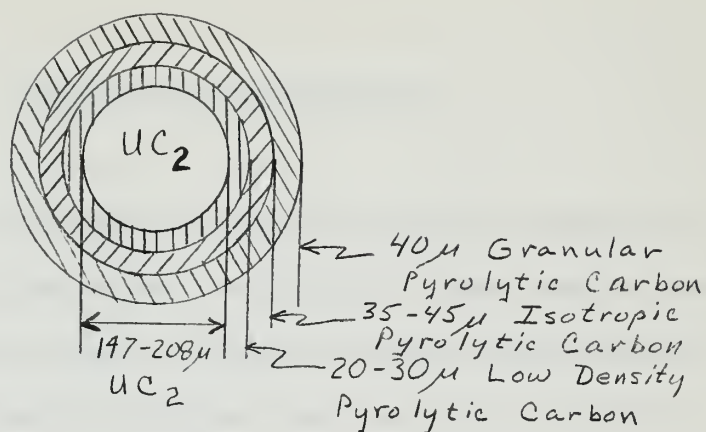 UC2
40μ Granular
Pyrolytic Carbon
35-45μ Isotropic
Pyrolytic Carbon
147-208μ
UC2
20-30μ Low Density
Pyrolytic Carbon